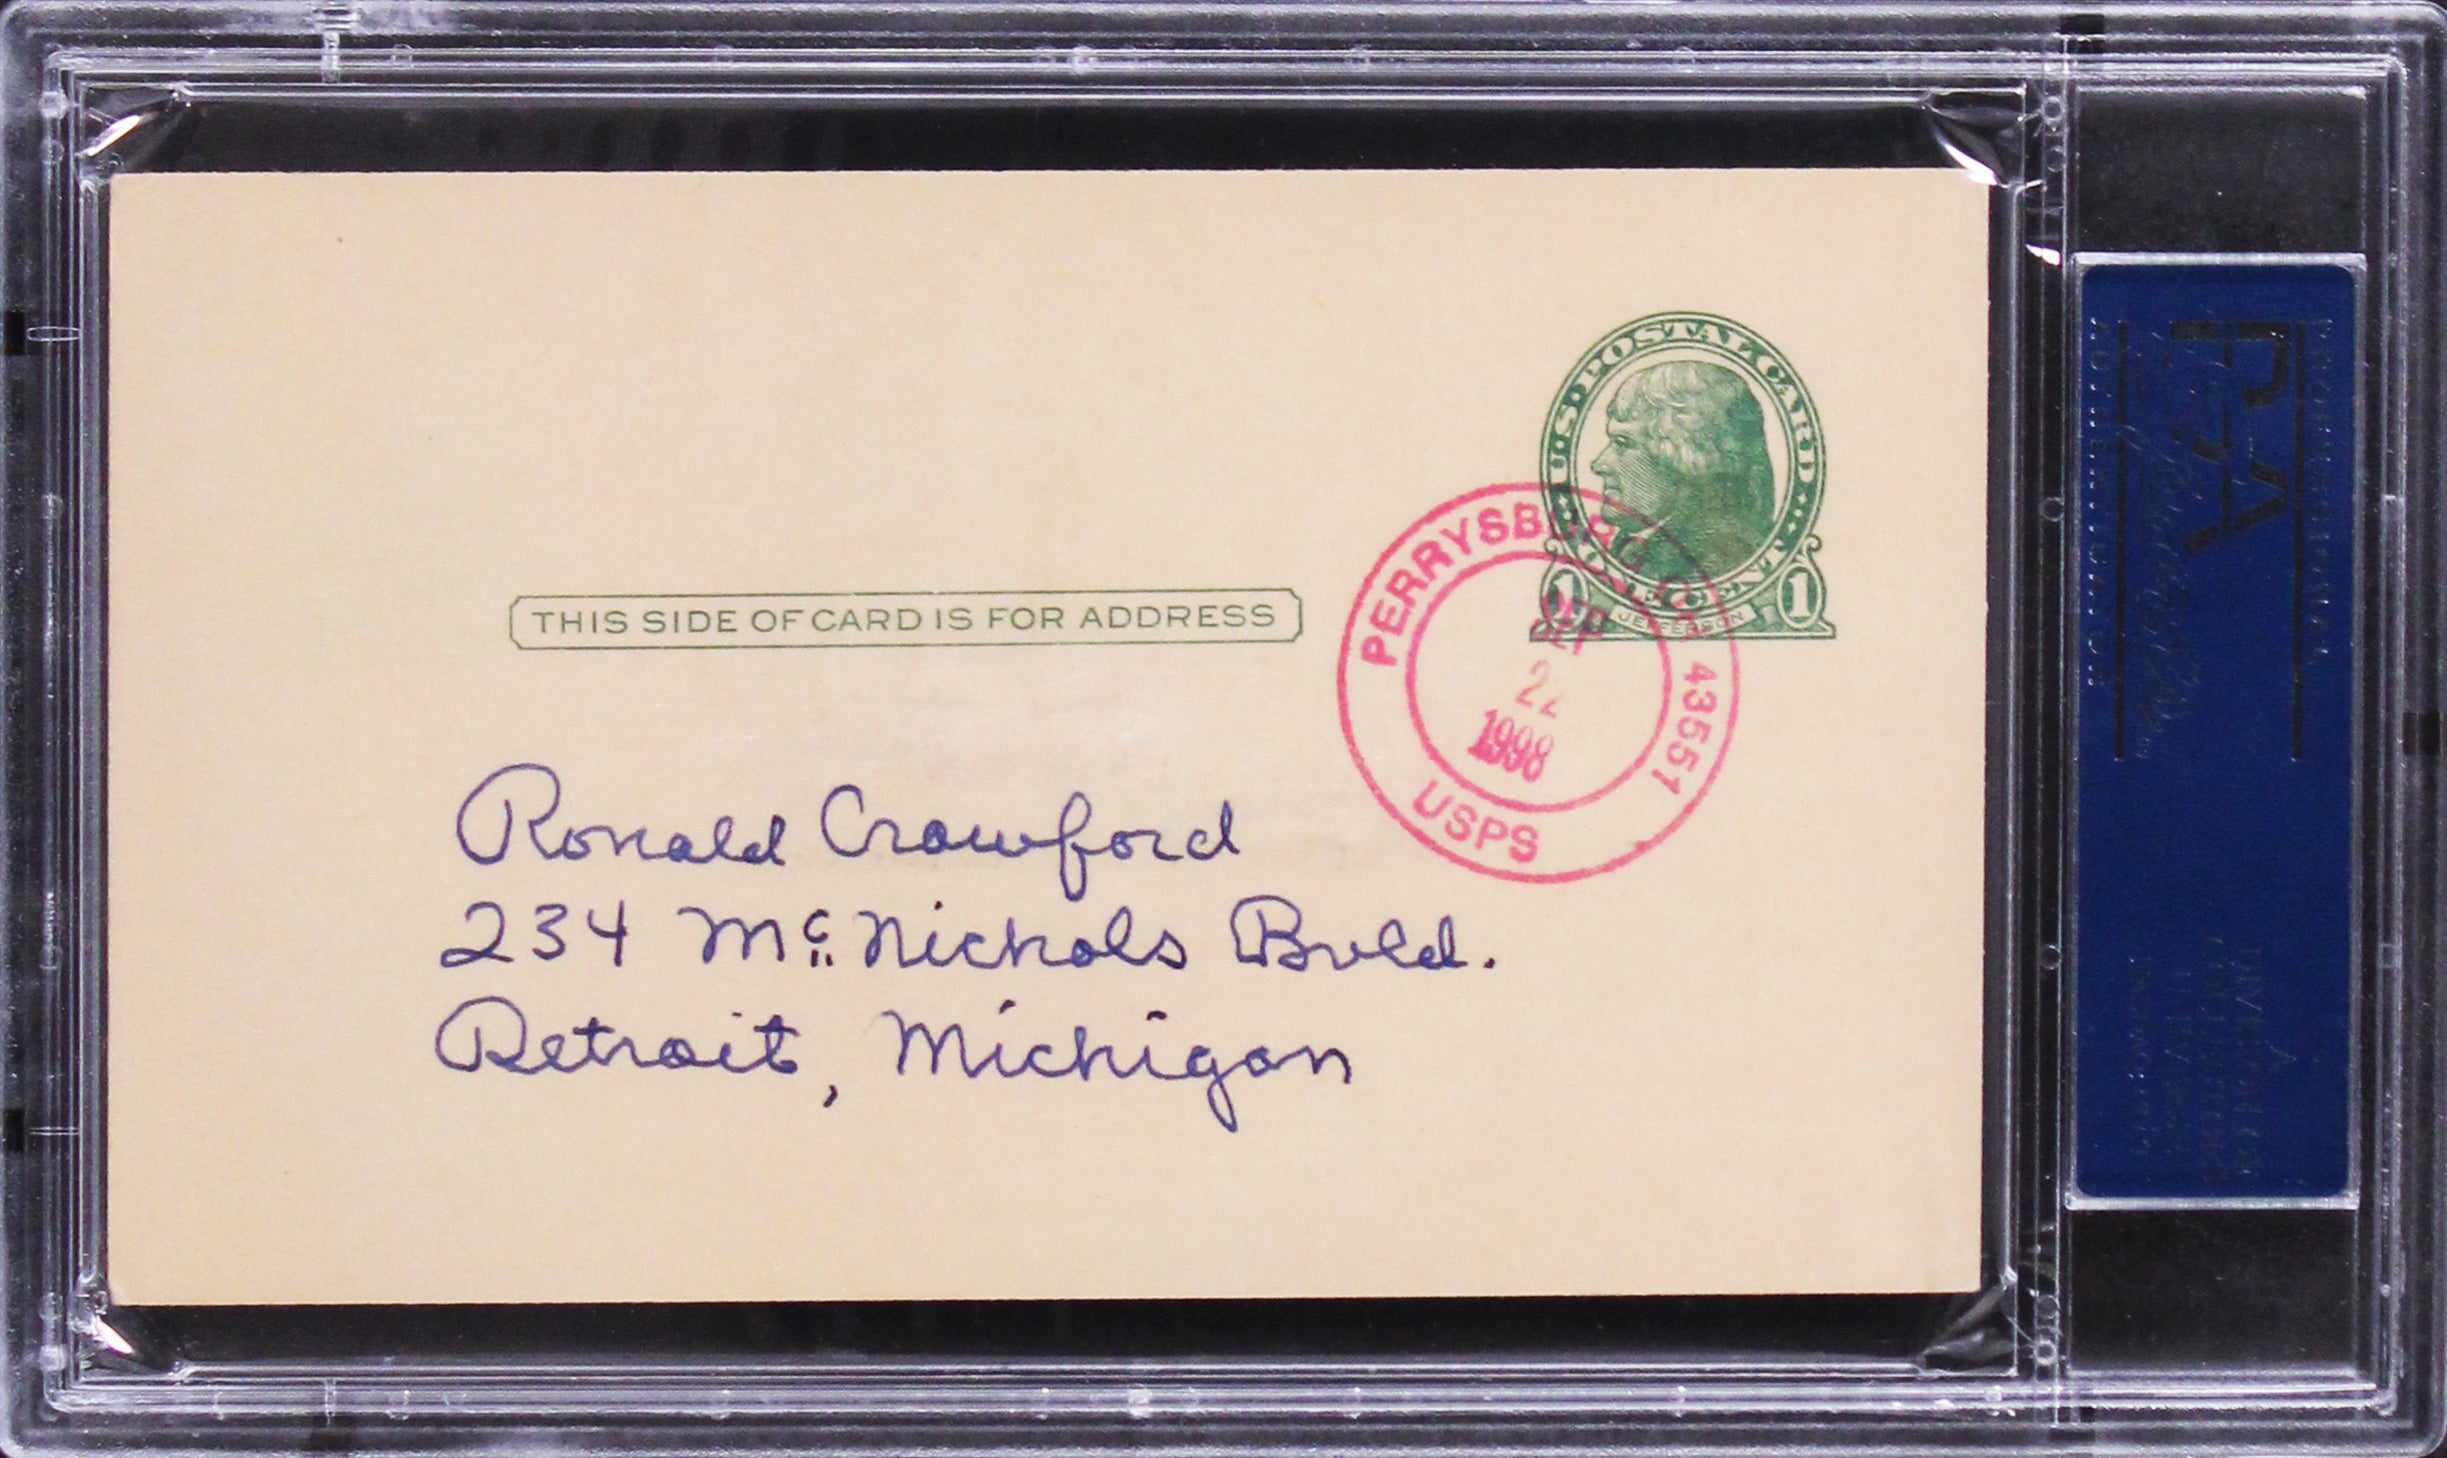 U.S. POSTAL CARD
1 ONE CENT 1
JEFFERSON
THIS SIDE OF CARD IS FOR ADDRESS
PERRYSBURG O 43551
SEP
22
1998
USPS
Ronald Crawford
234 Mc. Nichols Bvld.
Detroit, Michigan
PSA